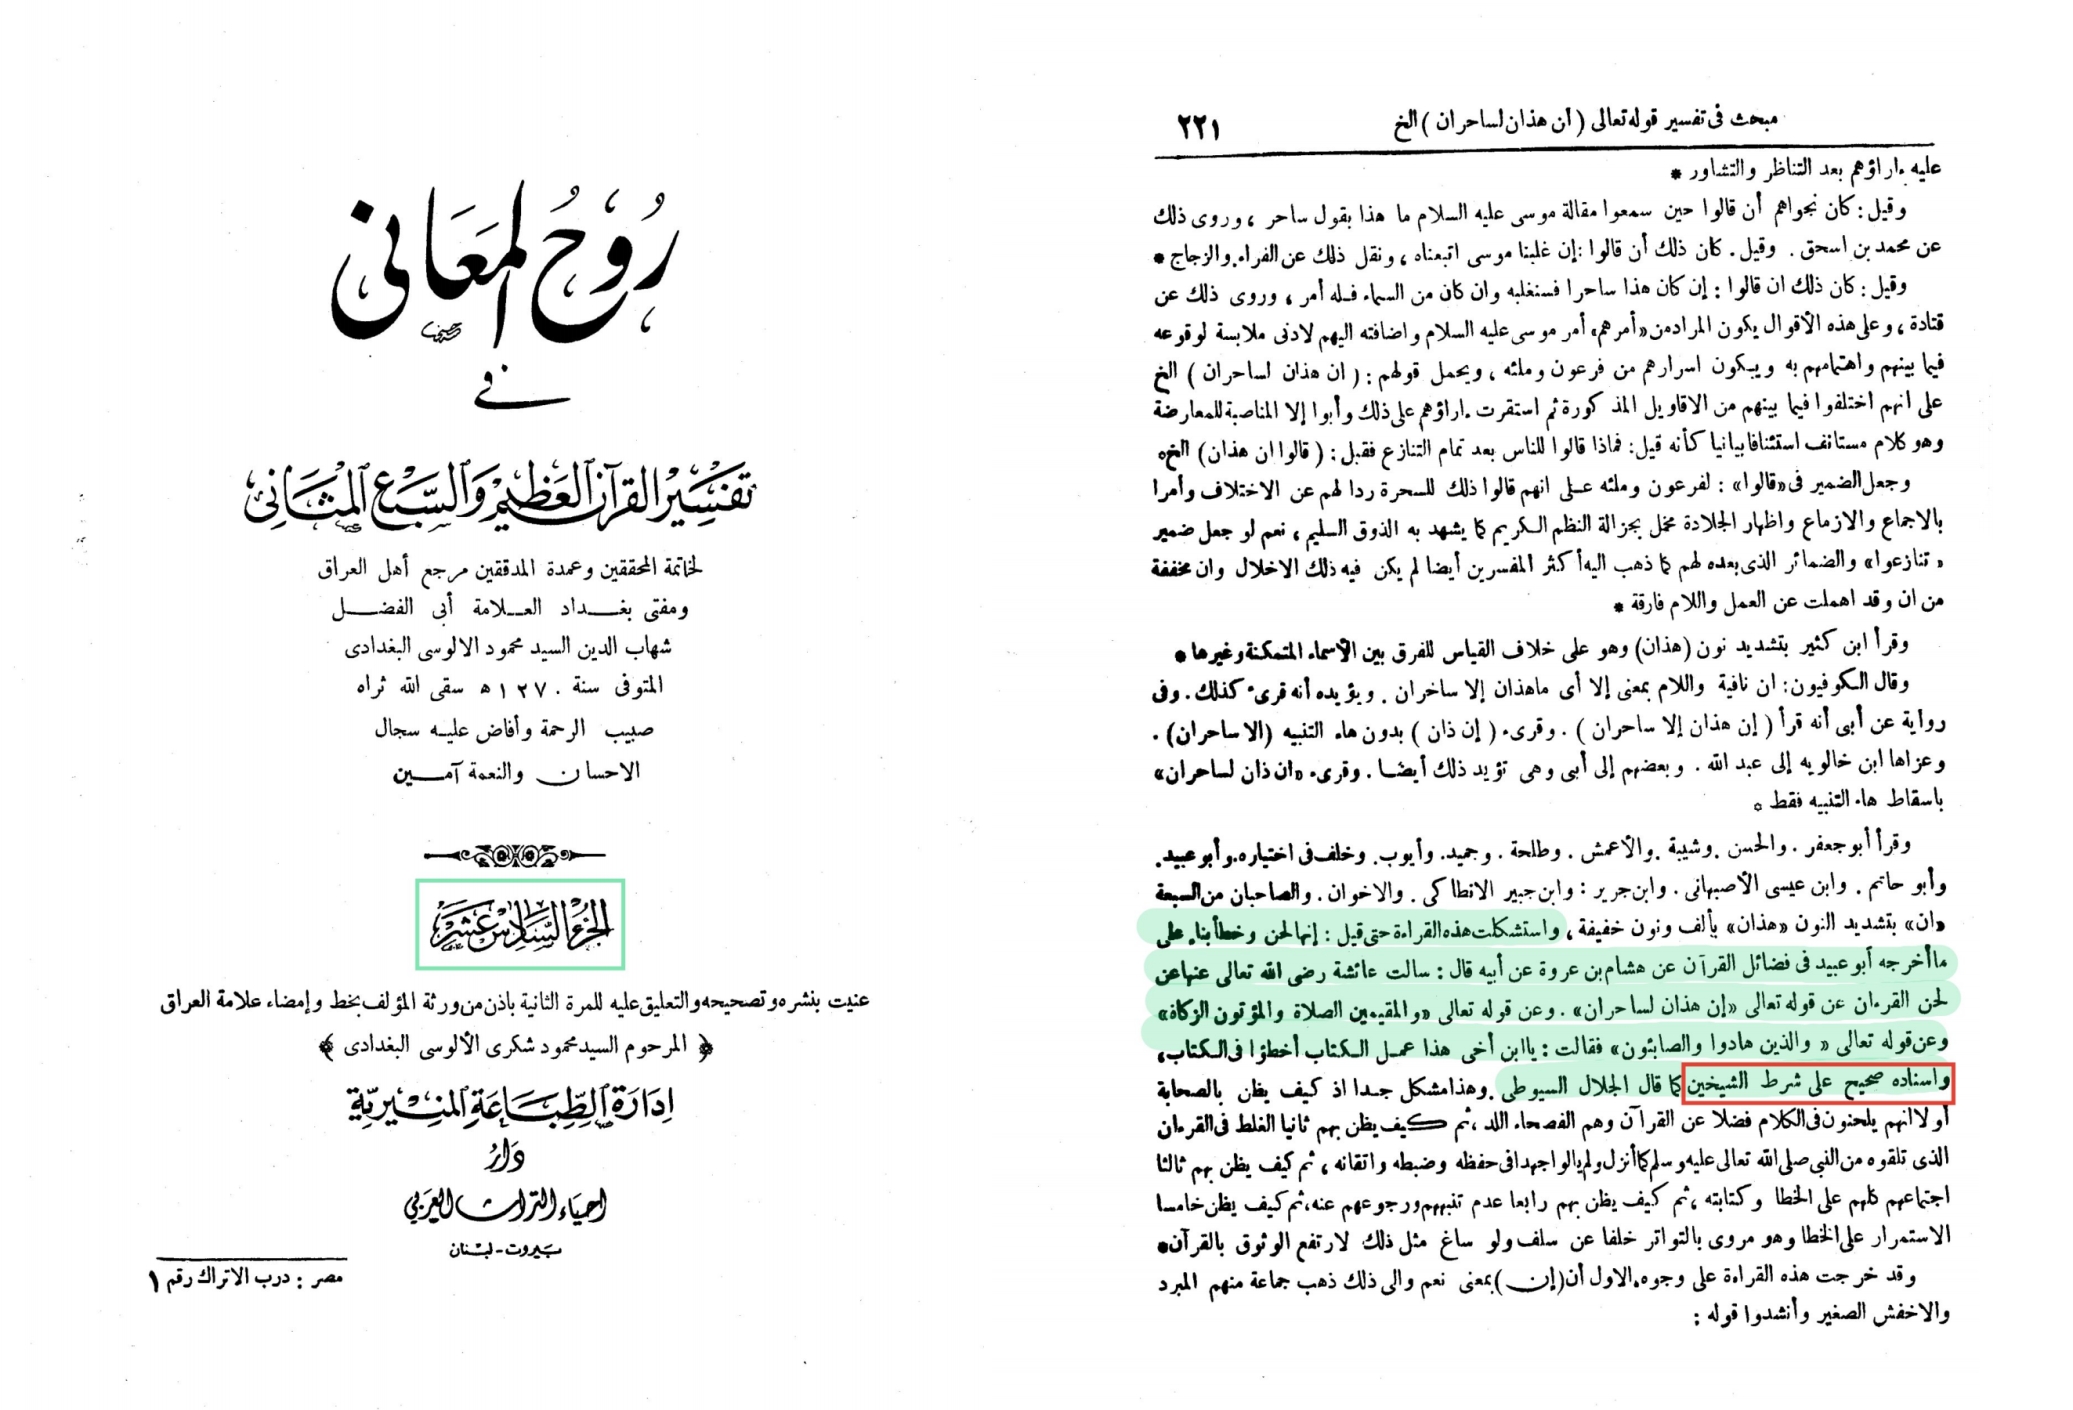 روح المعانى
فى
تفسير القرآن العظيم والسبع المثانى
لخاتمة المحققين وعمدة المدققين مرجع أهل العراق
ومفتى بغداد العلامة أبى الفضل
شهاب الدين السيد محمود الالوسى البغدادى
المتوفى سنة ١٢٧٠ ه سقى الله ثراه
صبيب الرحمة وأفاض عليه سجال
الاحسان والنعمة آمين
الجزء السادس عشر
عنيت بنشره وتصحيحه والتعليق عليه للمرة الثانية باذن من ورثة المؤلف بخط وإمضاء علامة العراق
﴿ المرحوم السيد محمود شكرى الألوسى البغدادى ﴾
إدارة الطباعة المنيرية
دار
احياء التراث العربي
بيروت - لبنان
مصر : درب الاتراك رقم ١
مبحث فى تفسير قوله تعالى (أن هذان لساحران ) الخ ٢٢١
عليه ءاراؤهم بعد التناظر والتشاور *
وقيل : كان نجواهم أن قالوا حين سمعوا مقالة موسى عليه السلام ما هذا بقول ساحر ، وروى ذلك
عن محمد بن اسحق . وقيل . كان ذلك أن قالوا : إن غلبنا موسى اتبعناه ، ونقل ذلك عن الفراء . والزجاج *
وقيل : كان ذلك ان قالوا : إن كان هذا ساحرا فسنغلبه وان كان من السماء فله أمر ، وروى ذلك عن
قتادة ، وعلى هذه الأقوال يكون المراد من «أمرهم» أمر موسى عليه السلام واضافته اليهم لادنى ملابسة لوقوعه
فيما بينهم واهتمامهم به ويكون اسرارهم من فرعون وملئه ، ويحمل قولهم : ( ان هذان لساحران ) الخ
على انهم اختلفوا فيما بينهم من الاقاويل المذكورة ثم استقرت ءاراؤهم على ذلك وأبوا إلا المناصبة للمعارضة
وهو كلام مستانف استئنافا بيانيا كأنه قيل : فماذا قالوا للناس بعد تمام التنازع فقيل : ( قالوا ان هذان) الخ*
وجعل الضمير فى «قالوا» : لفرعون وملئه على انهم قالوا ذلك للسحرة ردا لهم عن الاختلاف وأمرا
بالاجماع والازماع واظهار الجلادة مخل بجزالة النظم الكريم كما يشهد به الذوق السليم ، نعم لو جعل ضمير
« تنازعوا» والضمائر الذى بعده لهم كما ذهب اليه أكثر المفسرين أيضا لم يكن فيه ذلك الاخلال وان مخففة
من ان وقد اهملت عن العمل واللام فارقة *
وقرأ ابن كثير بتشديد نون (هذان) وهو على خلاف القياس للفرق بين الأسماء المتمكنة وغيرها *
وقال الكوفيون : ان نافية واللام بمعنى إلا أى ماهذان إلا ساحران . ويؤيده أنه قرىء كذلك . وفى
رواية عن أبى أنه قرأ ( إن هذان إلا ساحران ) . وقرىء ( إن ذان ) بدون هاء التنبيه (الا ساحران) .
وعزاها ابن خالويه إلى عبد الله . وبعضهم إلى أبى وهى تؤيد ذلك أيضا . وقرىء «ان ذان لساحران»
باسقاط هاء التنبيه فقط *
وقرأ أبو جعفر . والحسن . وشيبة . والأعمش . وطلحة . وحميد. وأيوب. وخلف فى اختياره. وأبو عبيد.
وأبو حاتم . وابن عيسى الأصبهانى . وابن جرير : وابن جبير الانطاكى . والاخوان . والصاحبان من السبعة
«ان» بتشديد النون «هذان» بألف ونون خفيفة ، واستشكلت هذه القراءة حتى قيل : إنها لحن وخطأ بناء على
ما أخرجه أبو عبيد فى فضائل القرآن عن هشام بن عروة عن أبيه قال : سالت عائشة رضى الله تعالى عنها عن
لحن القرءان عن قوله تعالى «إن هذان لساحران» . وعن قوله تعالى «والمقيمين الصلاة والمؤتون الزكاة»
وعن قوله تعالى « والذين هادوا والصابئون» فقالت : يا ابن أخى هذا عمل الكتاب أخطؤا فى الكتاب ،
واسناده صحيح على شرط الشيخين كما قال الجلال السيوطى . وهذا مشكل جدا اذ كيف يظن بالصحابة
أولا انهم يلحنون فى الكلام فضلا عن القرآن وهم الفصحاء اللد ، ثم كيف يظن بهم ثانيا الغلط فى القرءان
الذى تلقوه من النبى صلى الله تعالى عليه وسلم كما أنزل ولم يالوا جهدا فى حفظه وضبطه واتقانه ، ثم كيف يظن بهم ثالثا
اجتماعهم كلهم على الخطا وكتابته ، ثم كيف يظن بهم رابعا عدم تنبههم ورجوعهم عنه ، ثم كيف يظن خامسا
الاستمرار على الخطا وهو مروى بالتواتر خلفا عن سلف ولو ساغ مثل ذلك لارتفع الوثوق بالقرآن*
وقد خرجت هذه القراءة على وجوه. الاول أن (إن) بمعنى نعم والى ذلك ذهب جماعة منهم المبرد
والاخفش الصغير وأنشدوا قوله :